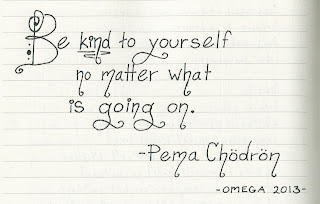 Be kind to yourself
no matter what
is going on.
-Pema Chödrön
-OMEGA 2013-